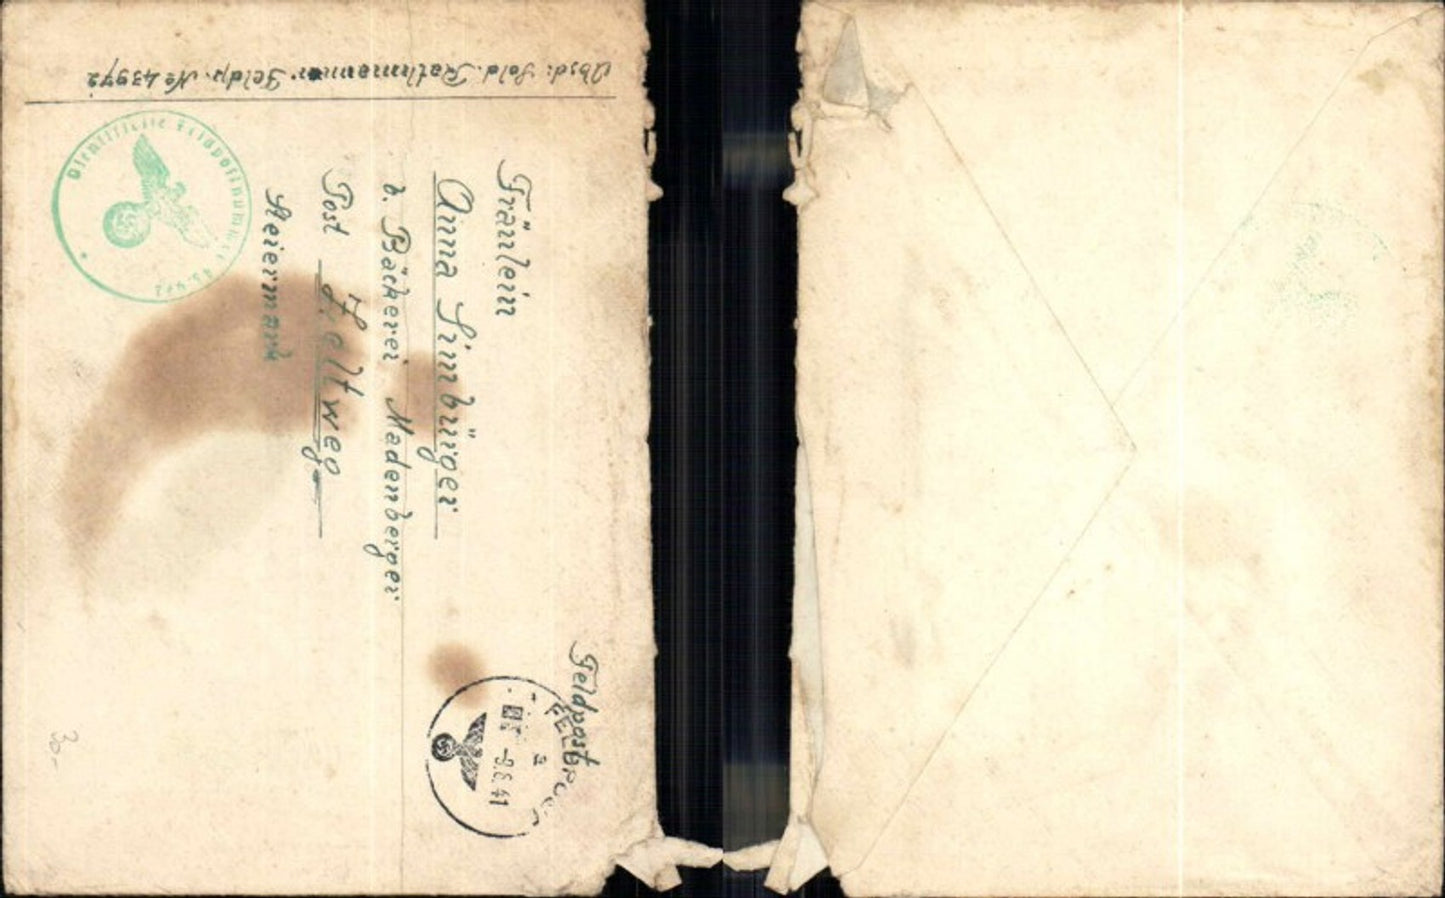 Feldpost
FELDPOST
a
-9.6.41
Fräulein
Anna Limbürger
b. Bäckerei Madenberger
Post Zeltweg
Steiermark
Absd: Sold. Rathmanner Feldp. № 43972
Dienststelle Feldpostnummer 43972
30.-